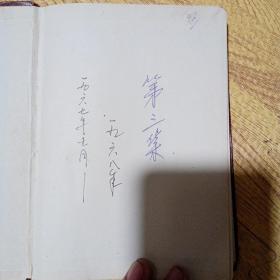 第三集
一九六八年
一九六七年七月—